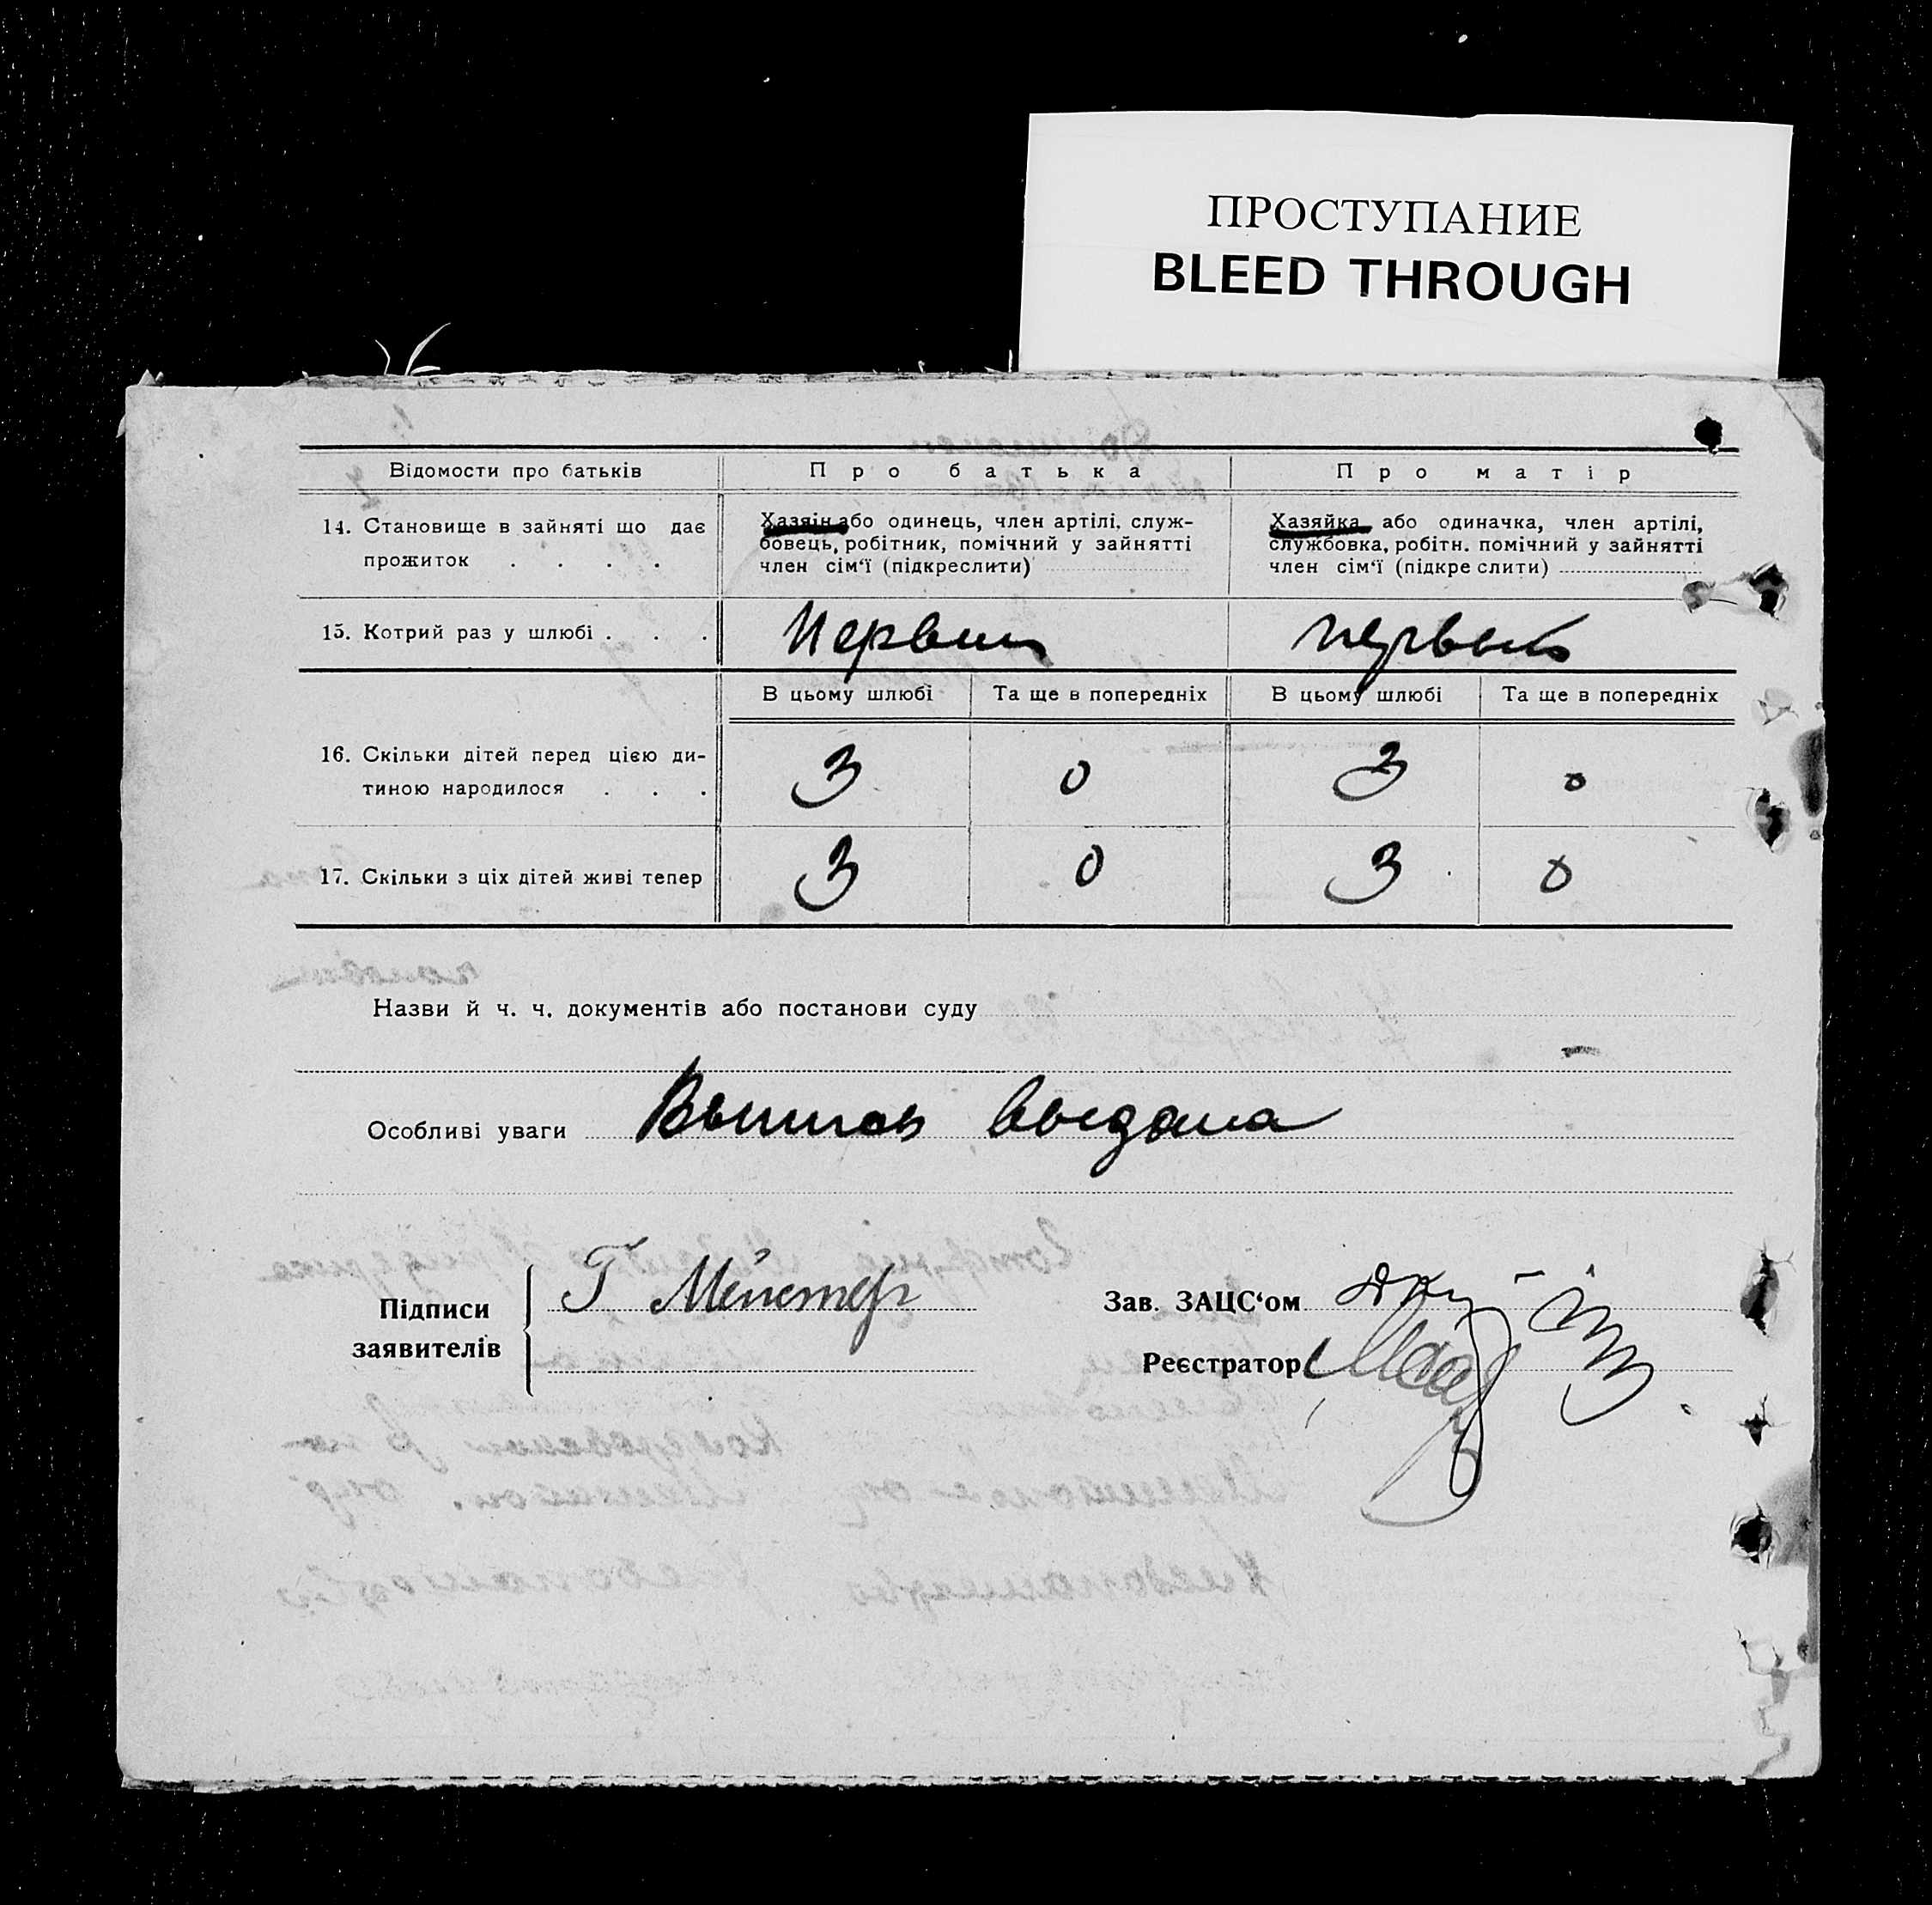 ПРОСТУПАНИЕ
BLEED THROUGH
Відомости про батьків Про батька Про матір
14. Становище в зайняті що дає
прожиток . . . .
Хазяїн або одинець, член артілі, служ-
бовець, робітник, помічний у зайнятті
член сім'ї (підкреслити)
Хазяйка або одиначка, член артілі,
службовка, робітн. помічний у зайнятті
член сім'ї (підкреслити)
15. Котрий раз у шлюбі . . . Первий первый
В цьому шлюбі Та ще в попередніх В цьому шлюбі Та ще в попередніх
16. Скільки дітей перед цією ди-
тиною народилося . . . 3 0 3 0
17. Скільки з ціх дітей живі тепер 3 0 3 0
Назви й ч. ч. документів або постанови суду
Особливі уваги Выпись выдана
Підписи
заявителів
Г Мейстер
Зав. ЗАЦС'ом
Реєстратор